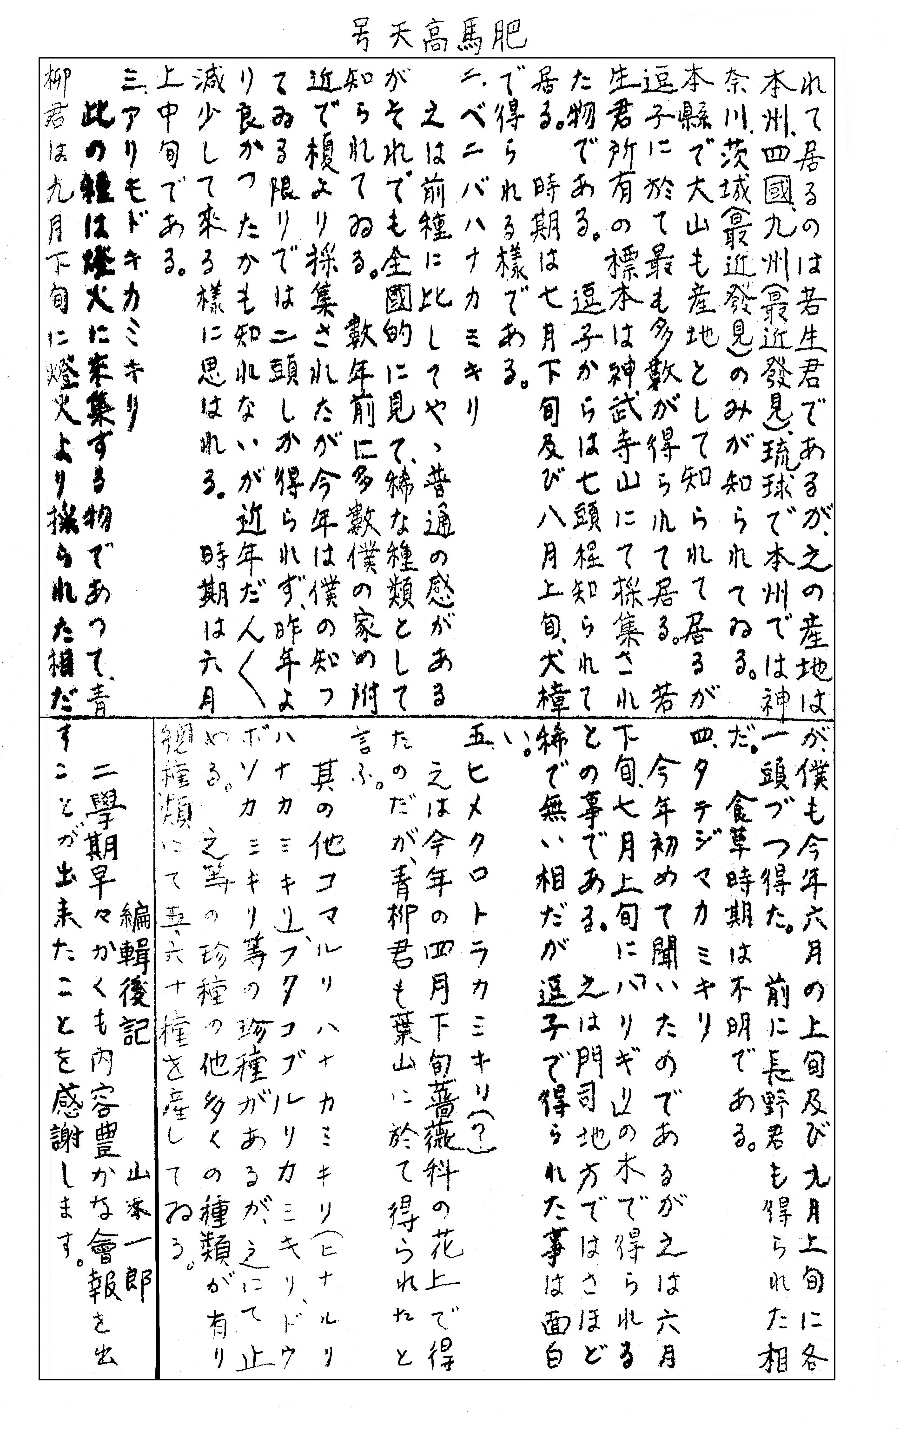 肥馬高天号
れて居るのは若生君であるが、之の産地は
本州、四國、九州(最近發見)、琉球で本州では神
奈川、茨城(最近發見)のみが知られてゐる。
本縣で大山も産地として知られて居るが
逗子に於て最も多數が得られて居る。若
生君所有の標本は神武寺山にて採集され
た物である。逗子からは七頭程知られて
居る。時期は七月下旬及び八月上旬、犬樟
で得られる様である。
二、ベニバハナカミキリ
之は前種に比してやゝ普通の感がある
がそれでも全國的に見て、稀な種類として
知られてゐる。數年前に多數僕の家の附
近で榎より採集されたが今年は僕の知つ
てゐる限りでは二頭しか得られず、昨年よ
り良かつたかも知れないが近年だん〱
減少して来る様に思はれる。時期は六月
上中旬である。
三、アリモドキカミキリ
此の種は燈火に来集する物であつて、青
柳君は九月下旬に燈火より採られた相だ
が、僕も今年六月の上旬及び九月上旬に各
一頭づつ得た。前に長野君も得られた相
だ。食草時期は不明である。
四、タテジマカミキリ
今年初めて聞いたのであるが之は六月
下旬、七月上旬に「ハリギリ」の木で得られる
との事である。之は門司地方ではさほど
稀で無い相だが逗子で得られた事は面白
い。
五、ヒメクロトラカミキリ(?)
之は今年の四月下旬薔薇科の花上で得
たのだが、青柳君も葉山に於て得られたと
言ふ。
其の他コマルリハナカミキリ(ヒナルリ
ハナカミキリ)、フタコブルリカミキリ、ドウ
ボソカミキリ等の珍種があるが、之にて止
める。之等の珍種の他多くの種類が有り
總種類にて五、六十種を産してゐる。
編輯後記 山本一郎
二學期早々かくも内容豊かな會報を出
すことが出来たことを感謝します。